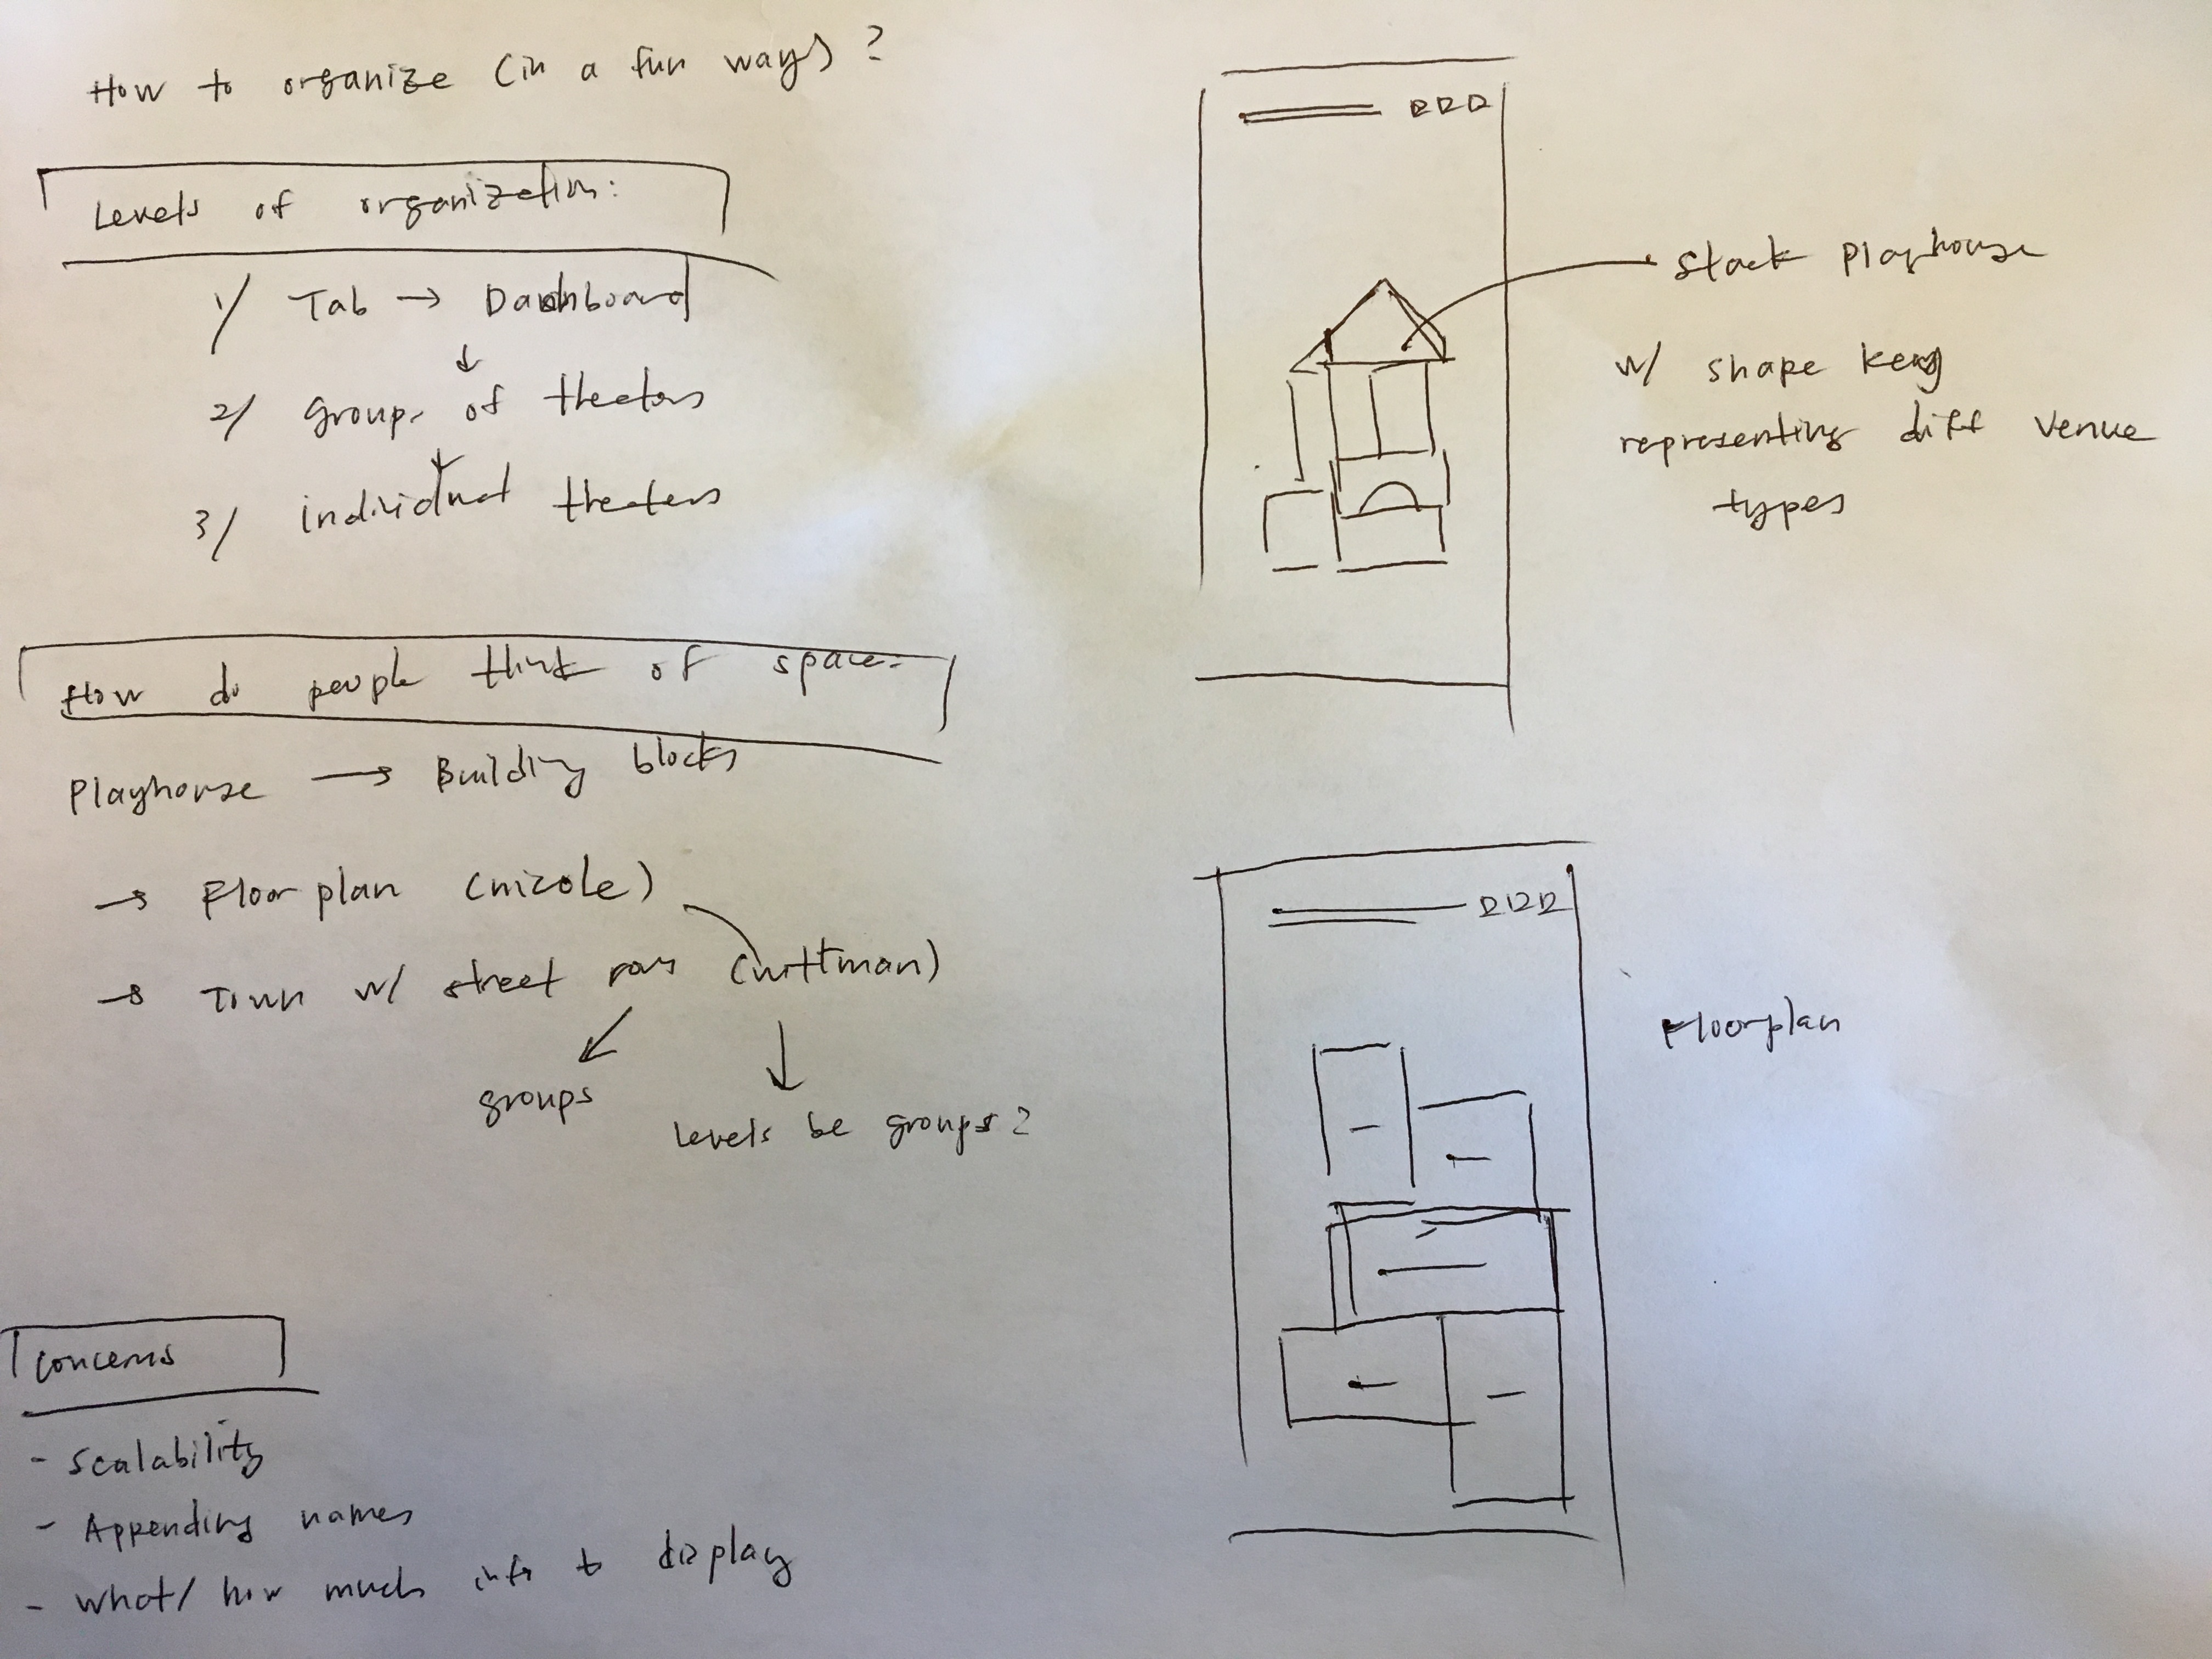 How to organize (in a fun ways) ?
Levels of organization:
1/ Tab → Dashboard
↓
2/ groups of theaters
↓
3/ individual theaters
How do people think of space:
Playhouse → Building blocks
→ Floor plan (nicole)
→ Town w/ street rows (wittman)
groups
Levels be groups?
Concerns
- Scalability
- Appending names
- What/how much info to display
Stack playhouse
w/ shape
representing diff venue
types
Floorplan